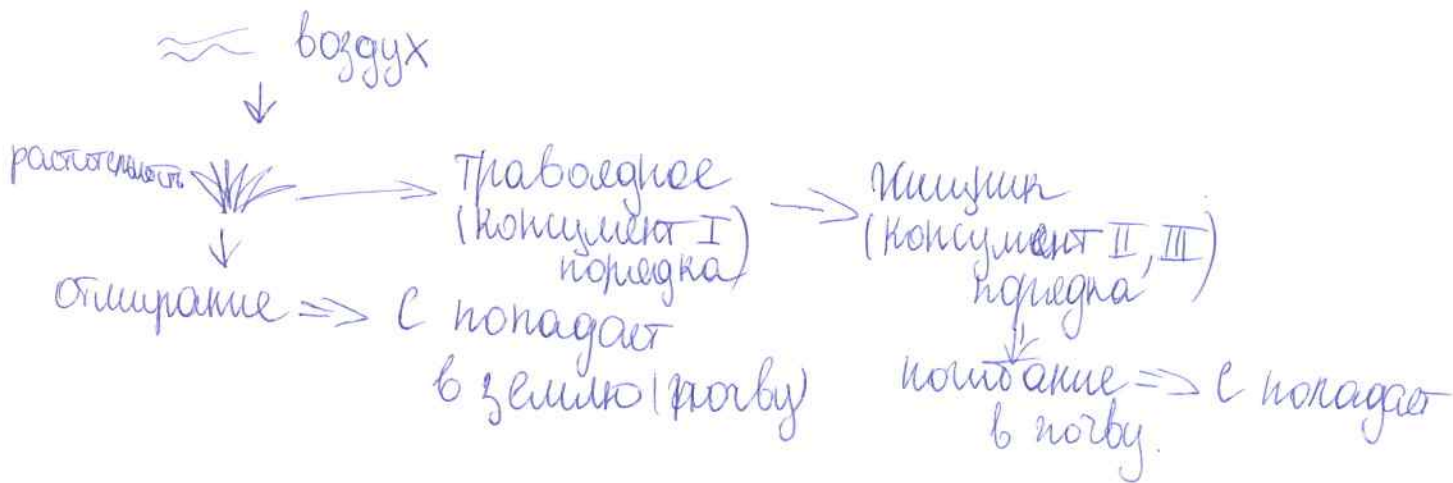 воздух
растительность
травоядное
(консумент I
порядка)
хищник
(консумент II, III)
порядка
отмирание => С попадает
в землю (почву)
погибание => С попадает
в почву.